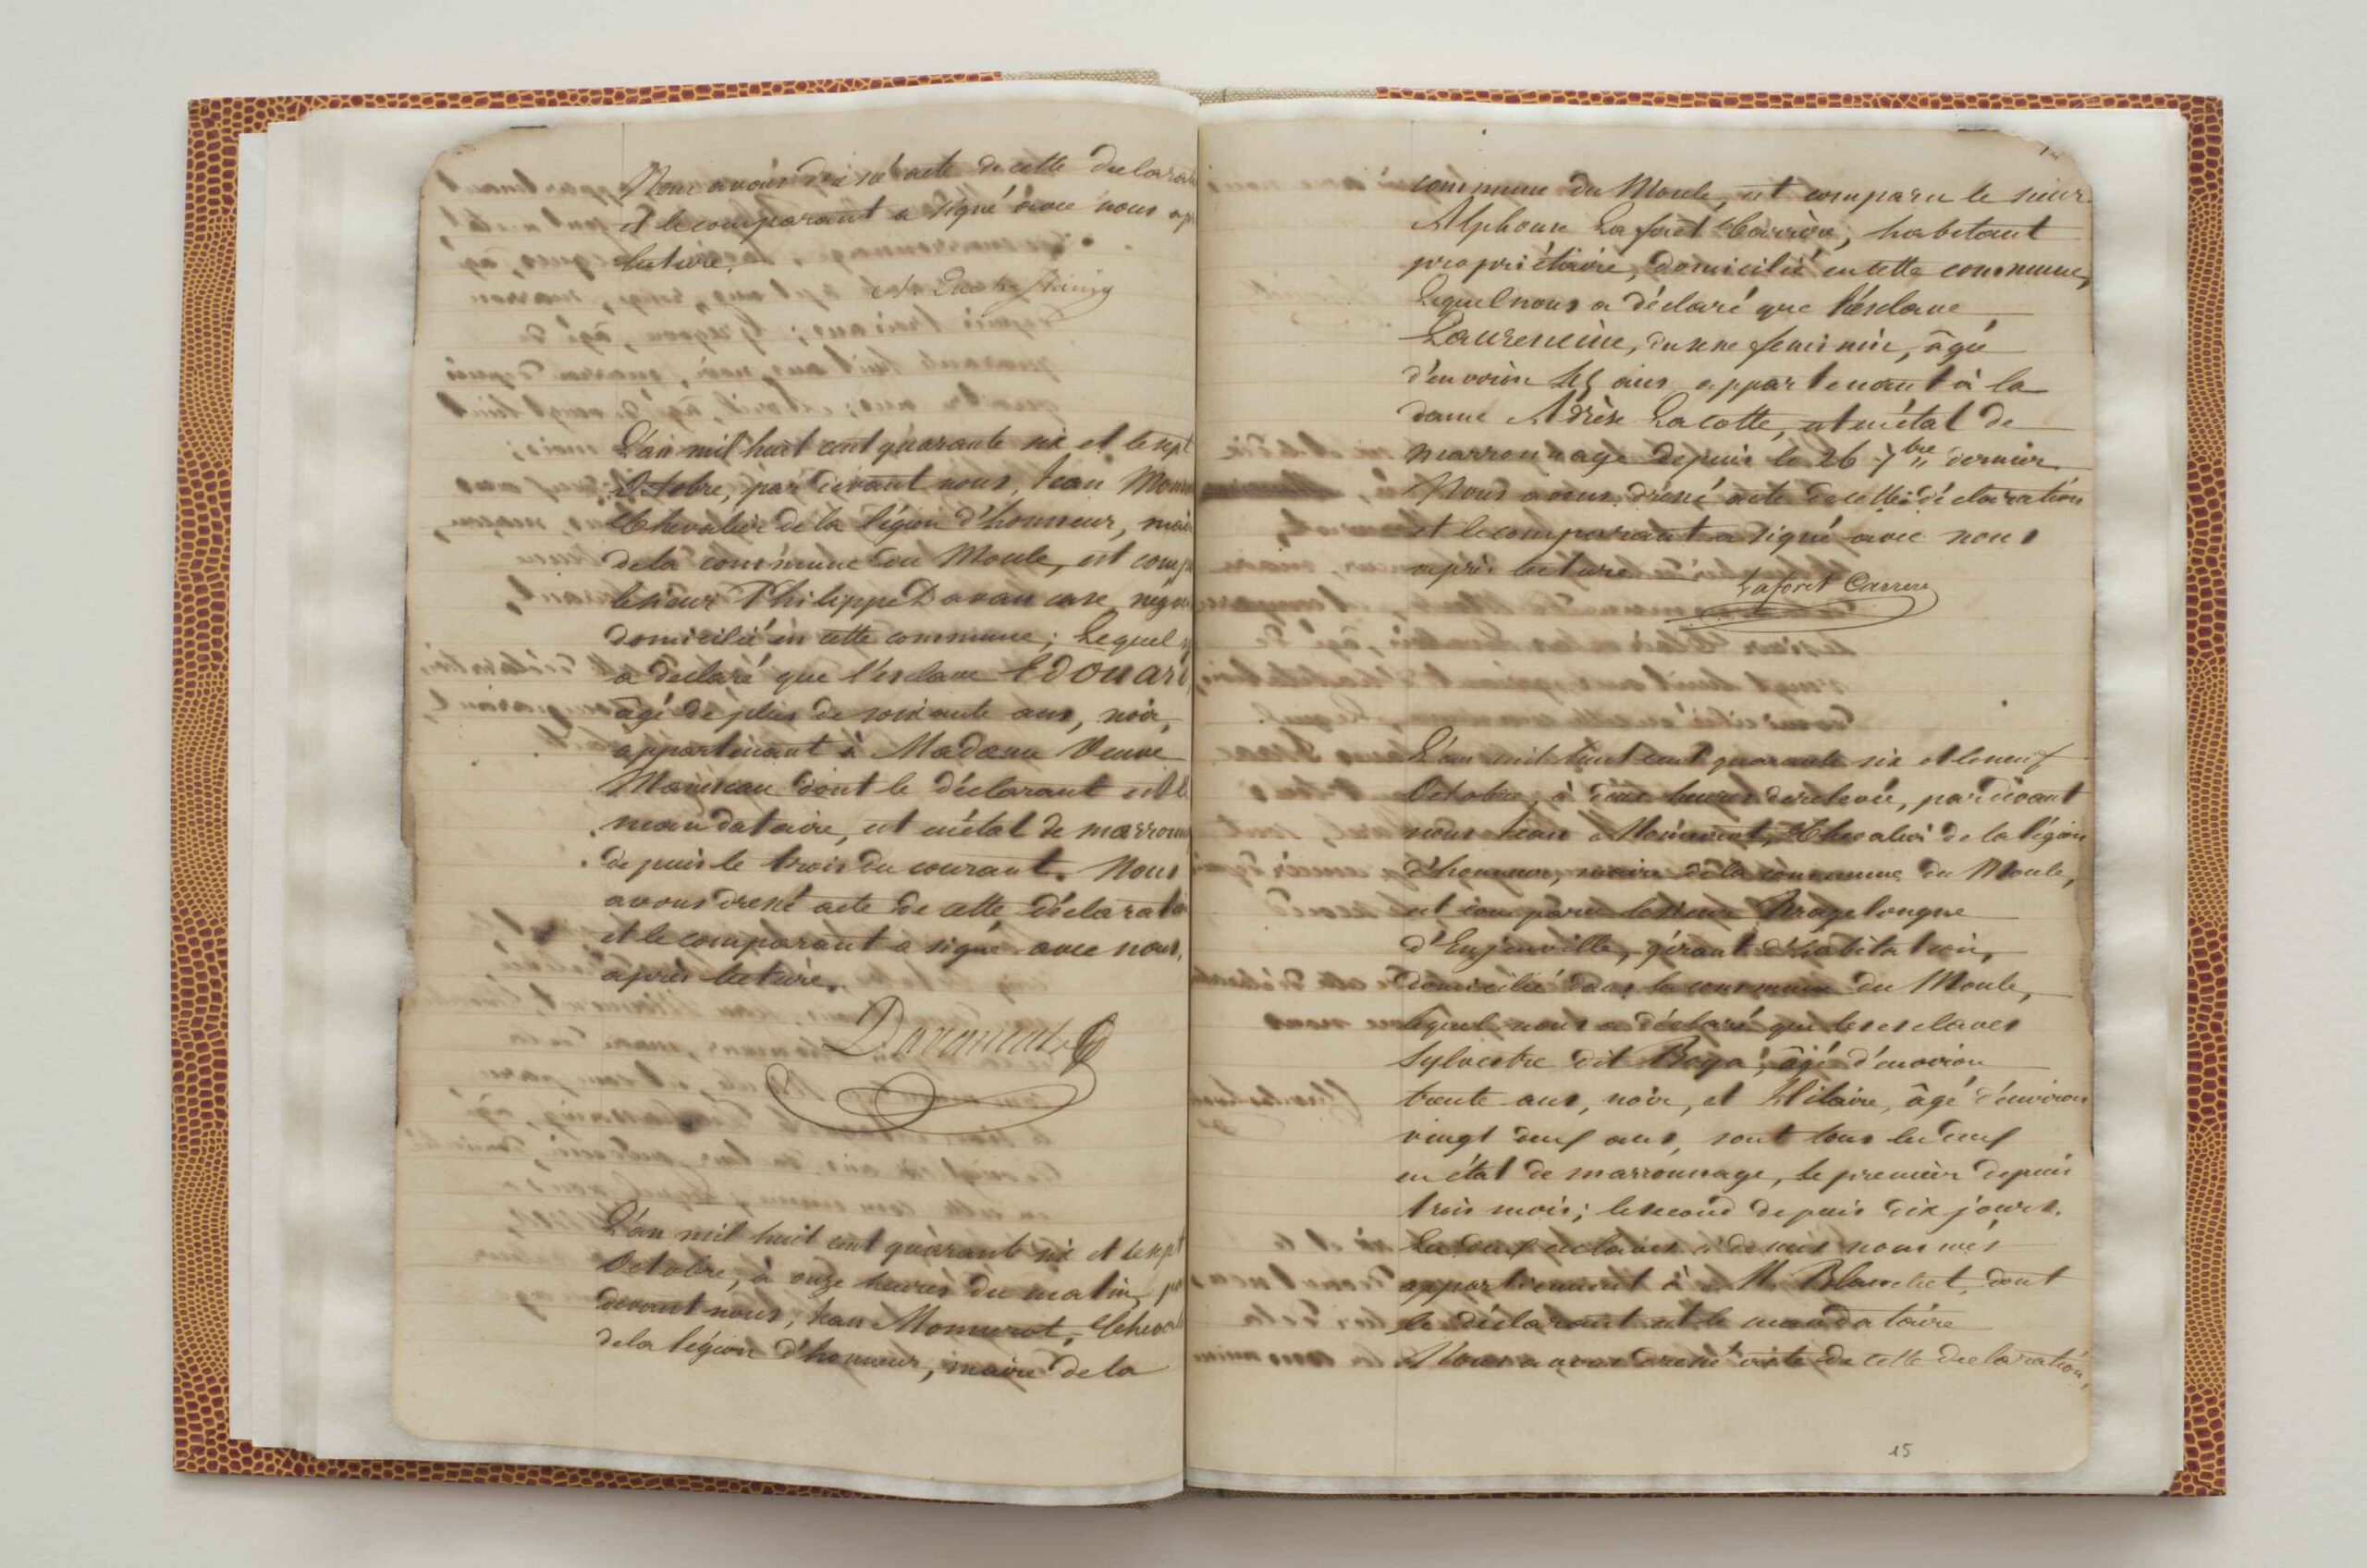 Nous avons dressé acte de cette declarat
et le comparant a signé avec nous ap
lecture.
L'an mil huit cent quarante six et le sept
Octobre, par devant nous, Jean Momm
Chevalier de la légion d'honneur, mair
de la commune du Moule, est comp
le sieur Philippe Davancaze, nego
domicilié en cette commune; Lequel n
a declaré que l'esclave Edouard
âgé de plus de soixante ans, noir,
appartenant à Madame Veuve
dont le déclarant est l
mandataire, est en état de marronn
depuis le trois du courant. Nous
avons dressé acte de cette déclaratio
et le comparant a signé avec nous,
après lecture.
L'an mil huit cent quarante six et le sept
Octobre, à onze heures du matin, p
devant nous, Jean Momerot, Cheval
de la légion d'honneur, maire de la
commune du Moule, est comparu le sieur
Alphonse Laforêt Carrère, habitant
propriétaire, domicilié en cette commune,
Lequel nous a déclaré que l'ésclave
Laurencine, du sexe feminin, âgée
d'environ 45 ans appartenant à la
dame Adrèse Lacotte, est en état de
marronnage depuis le 26 7bre dernier.
Nous avons dressé acte de cette déclaration
et le comparant a signé avec nous
après lecture
Laforet Carrere
L'an mil huit cent quarante six et le neuf
Octobre, à deux heures de relevée, par devant
nous Jean Momerot, Chevalier de la légion
d'honneur, maire de la commune du Moule,
est comparu le sieur Bragelongne
d'Enjenville, gérant d'habitation,
domicilié dans la commune du Moule,
lequel nous a déclaré que les esclaves
Sylvestre dit Boya, âgé d'environ
trente ans, noir, et Hilaire, âgé d'environ
vingt deux ans, sont tous les deux
en état de marronnage, le premier depuis
trois mois; le second depuis dix jours.
Les deux esclaves ci dessus nommés
appartiennent à M. Blanchet, dont
le déclarant est le mandataire
Nous avons dressé acte de cette declaration,
15